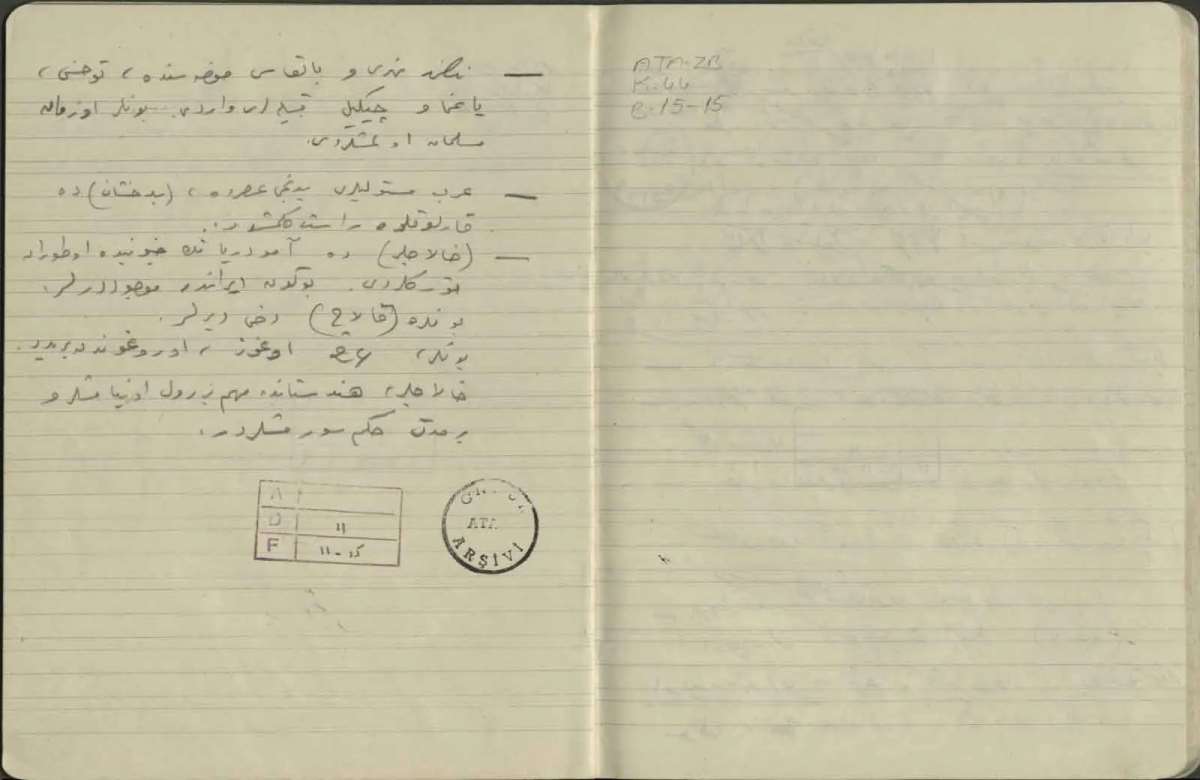 — نهری و بالقاش حوضه سنده، توخسی،
یاغما و چیگیل قبیله لری واردی. بونلر او زمان
مسلمان اولمشلردی.
— عرب مستولیلری یدنجی عصرده، (بدخشان) ده
قارلوقلره راست کلمشلردر.
— (خالاجلر) ده آمودریا نك جنوبنده اوطوران
تورکلردی. بوگون ایرانده موجوددرلر.
بونلره (قالاچ) دخی دیرلر.
بونلر، ٢٤ اوغوز، اوروغوندندیر.
خالاجلر، هندستانده مهم بر رول اوینامشلر و
بر مدت حکم سورمشلردر.
A
D ١١
F ١١-١٥
ATA
ARŞİVİ
ATA-ZB
K:44
B-15-15